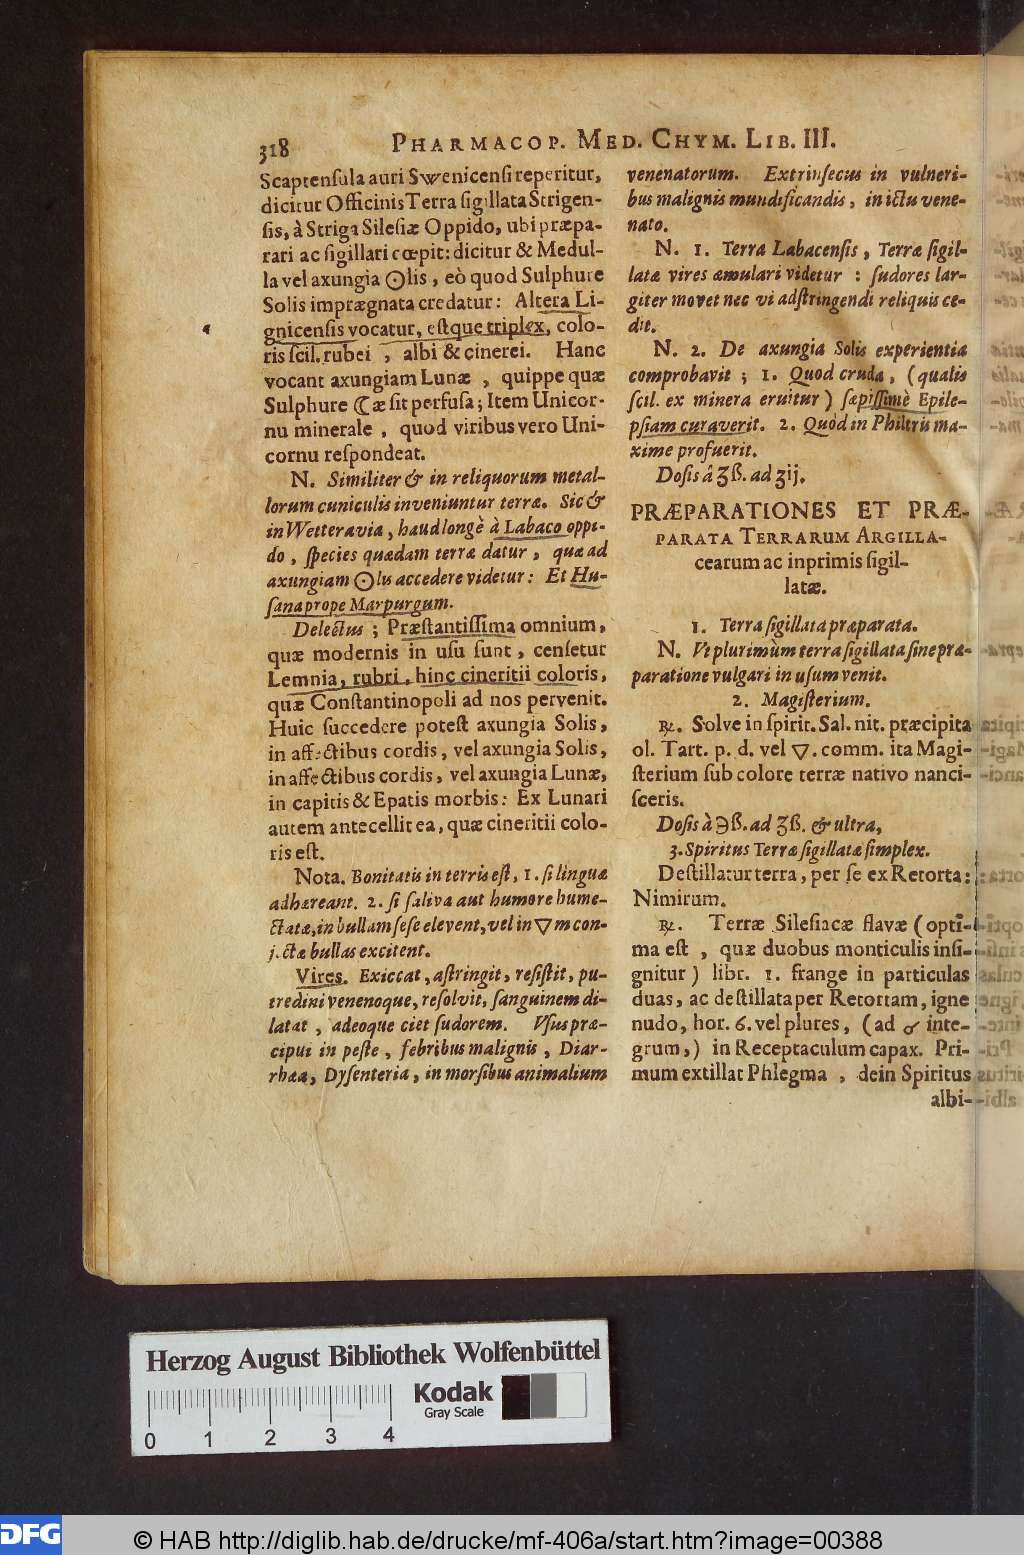 318 PHARMACOP. MED. CHYM. LIB. III.
Scaptensula auri Swenicensi reperitur,
dicitur Officinis Terra sigillata Strigen-
sis, à Striga Silesiæ Oppido, ubi præpa-
rari ac sigillari cœpit: dicitur & Medul-
la vel axungia ☉lis, eò quod Sulphure
Solis imprægnata credatur: Altera Li-
gnicensis vocatur, estque triplex, colo-
ris scil. rubei, albi & cinerei. Hanc
vocant axungiam Lunæ, quippe quæ
Sulphure ☾æ sit perfusa; Item Unicor-
nu minerale, quod viribus vero Uni-
cornu respondeat.
N. Similiter & in reliquorum metal-
lorum cuniculis inveniuntur terræ. Sic &
in Wetteravia, haud longè à Labaco oppi-
do, species quædam terræ datur, quæ ad
axungiam ☉lis accedere videtur: Et Hu-
sana prope Marpurgum.
Delectus; Præstantissima omnium,
quæ modernis in usu sunt, censetur
Lemnia, rubri, hinc cineritii coloris,
quæ Constantinopoli ad nos pervenit.
Huic succedere potest axungia Solis,
in affectibus cordis, vel axungia Solis,
in affectibus cordis, vel axungia Lunæ,
in capitis & Epatis morbis: Ex Lunari
autem antecellit ea, quæ cineritii colo-
ris est.
Nota. Bonitatis in terris est, 1. si linguæ
adhæreant. 2. si saliva aut humore hume-
ctatæ, in bullam sese elevent, vel in ▽m con-
j.ctæ bullas excitent.
Vires. Exiccat, astringit, resistit, pu-
tredini venenoque, resolvit, sanguinem di-
latat, adeoque ciet sudorem. Usus præ-
cipui in peste, febribus malignis, Diar-
rhæa, Dysenteria, in morsibus animalium
venenatorum. Extrinsecus in vulneri-
bus malignis mundificandis, in ictu vene-
nato.
N. 1. Terra Labacensis, Terræ sigil-
latæ vires æmulari videtur: sudores lar-
giter movet nec vi adstringendi reliquis ce-
dit.
N. 2. De axungia Solis experientia
comprobavit; 1. Quod cruda, (qualis
scil. ex minera eruitur) sæpissimè Epile-
psiam curaverit. 2. Quod in Philtris ma-
xime profuerit.
Dosis â ʒß. ad ʒij.
PRÆPARATIONES ET PRÆ-
PARATA TERRARUM ARGILLA-
cearum ac inprimis sigil-
latæ.
1. Terra sigillata præparata.
N. Ut plurimùm terra sigillata sine præ-
paratione vulgari in usum venit.
2. Magisterium.
℞. Solve in spirit. Sal. nit. præcipita
ol. Tart. p. d. vel ▽. comm. ita Magi-
sterium sub colore terræ nativo nanci-
sceris.
Dosis à ℈ß. ad ʒß. & ultra,
3. Spiritus Terræ sigillatæ simplex.
Destillatur terra, per se ex Retorta:
Nimirum.
℞. Terræ Silesiacæ flavæ (opti-
ma est, quæ duobus monticulis insi-
gnitur) libr. 1. frange in particulas
duas, ac destillata per Retortam, igne
nudo, hor. 6. vel plures, (ad ♂ inte-
grum,) in Receptaculum capax. Pri-
mum extillat Phlegma, dein Spiritus
albi-
Herzog August Bibliothek Wolfenbüttel
Kodak
Gray Scale
0 1 2 3 4
DFG © HAB http://diglib.hab.de/drucke/mf-406a/start.htm?image=00388